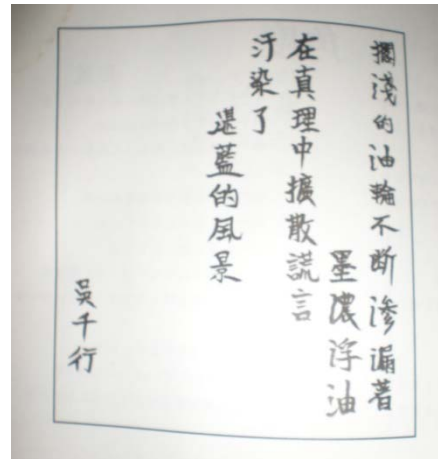 擱淺的油輪不断滲漏著
墨濃浮油
在真理中擴散謊言
汙染了
湛藍的風景
吳千行